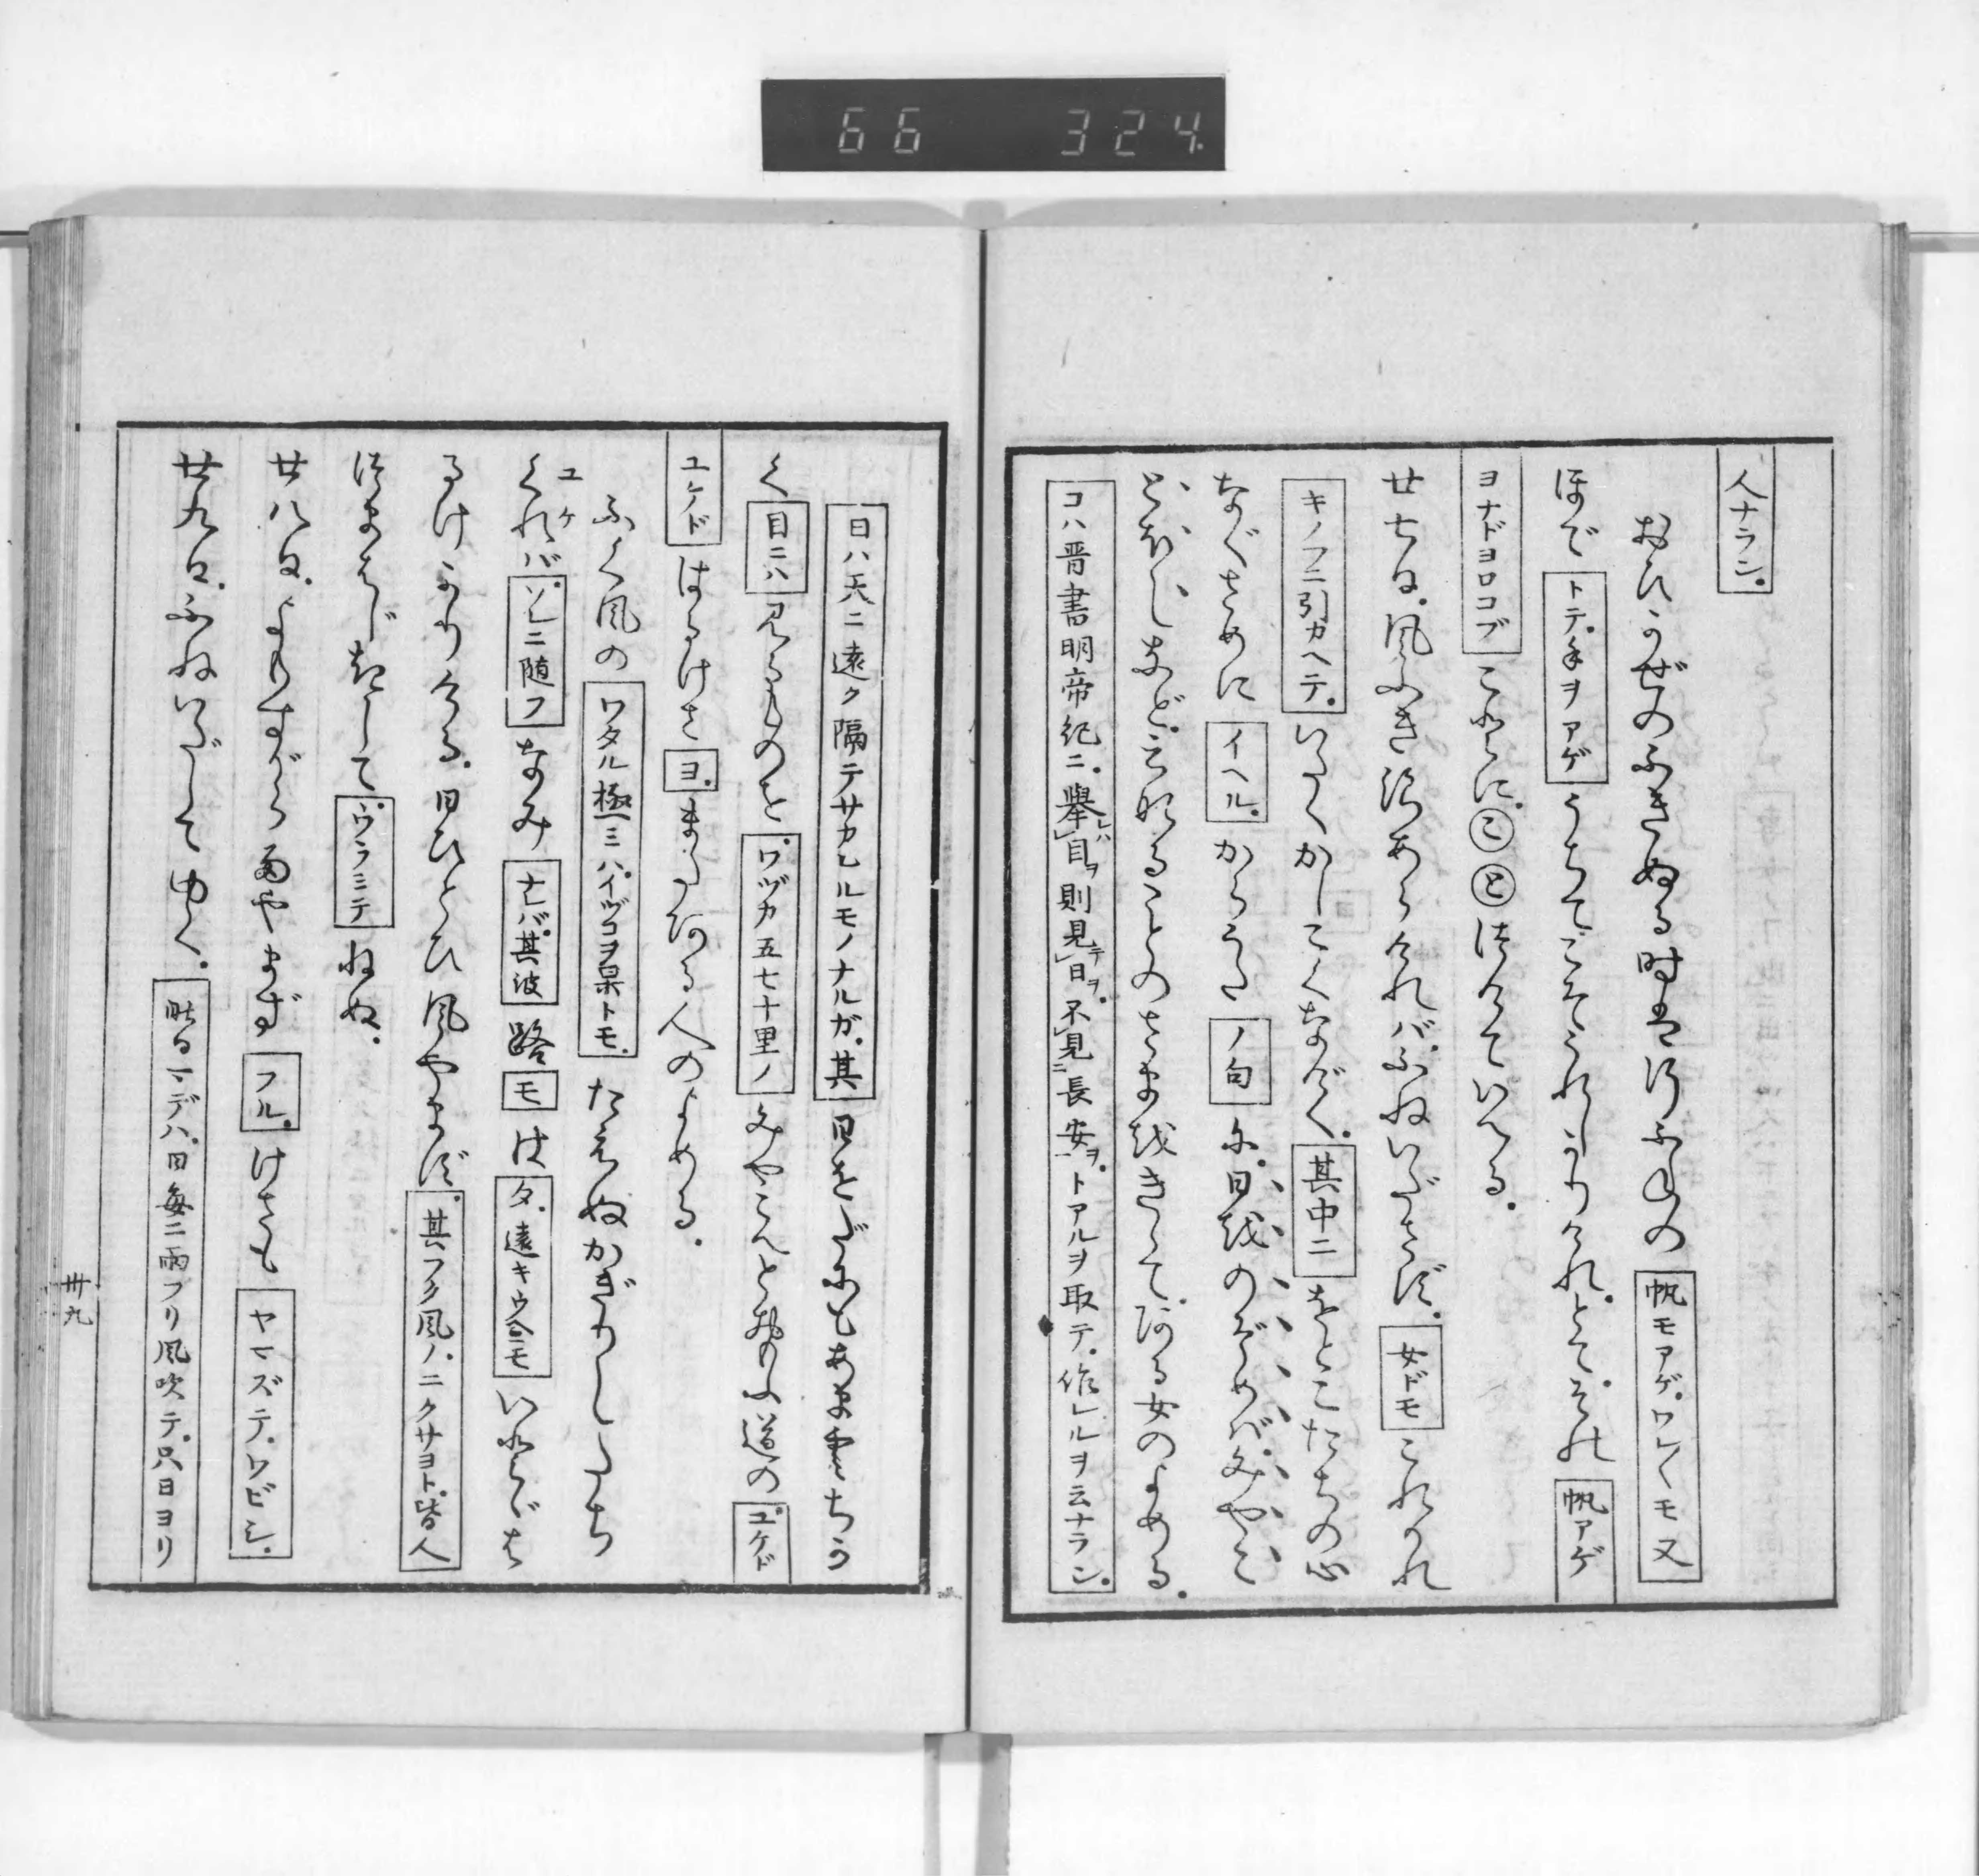 66 324.
人ナラン。
おひかぜのふきぬる時は行ふねの帆モアゲ。ワレ〱モ又
ほでトテ。手ヲアゲうちてこそうれしかりけれ。とぞ。それ帆アゲ
ヨナドヨロコブ
廿七日。風ふき浪あらけれバ。ふねいださず。女ドモこれかれ
キノフニ引カヘテ。いたくかしこくなげく。其中ニをとこたちの心
なぐさめにイヘル。からうたノ句に。日をのぞめバ。みやこ
とほしなど。いへることのさまをきゝて。ある女のよめる。
コハ晋書明帝紀ニ。擧レハ目ヲ則見テ日ヲ。不見ニ長安ヲ。トアルヲ取テ。作レルヲ云ナラン。
日ハ天ニ遠ク隔テサカレルモノナルガ。其日をだにもあま雲ちか
く目ニハ見るものをワヅカ五七十里ノみやこへとおもふ道のユケド
ユケドはるけさヨ。またある人のよめる。
ふく風のワタル極ミハ。イヅコヲ果トモ。たえぬかぎりしたち
くれバソレニ随フなみナレバ。其波路モはタ。遠キウヘニモいとゞは
るけかりける。日ひとひ風やまず。其フク風ノ。ニクサヨト。皆人
つまはじきしてウラミテねぬ。
廿八日。よもすがら雨やまずフル。けさもヤマズテ。ワビシ。
廿九日。ふねいだしてゆく。昨日マデハ。日毎ニ雨フリ風吹テ。只日ヨリ
卅九